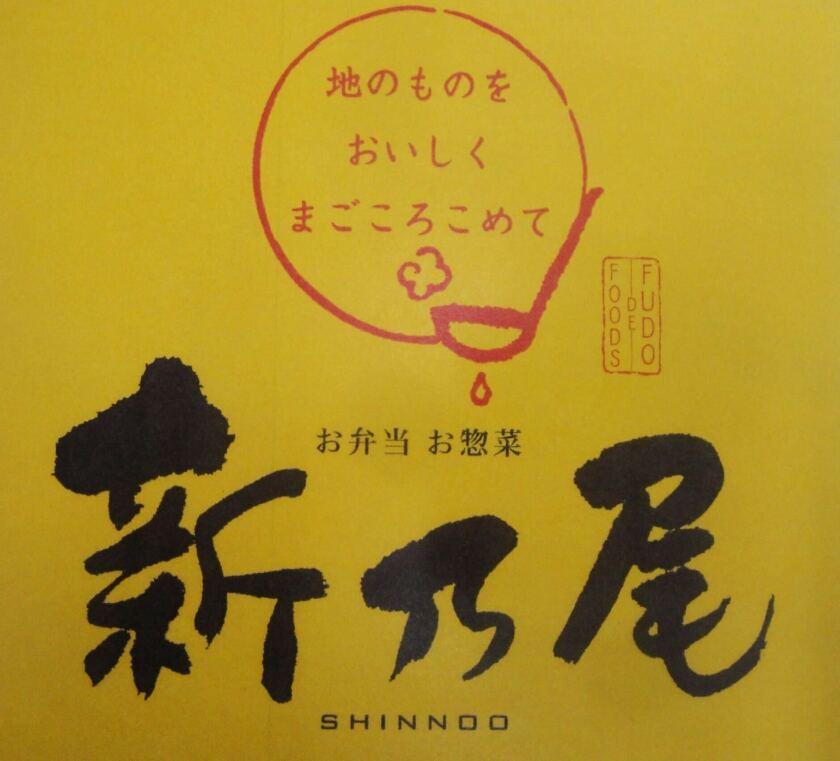 地のものを
おいしく
まごころこめて
FUDO
DE
FOODS
お弁当 お惣菜
新乃尾
SHINNOO